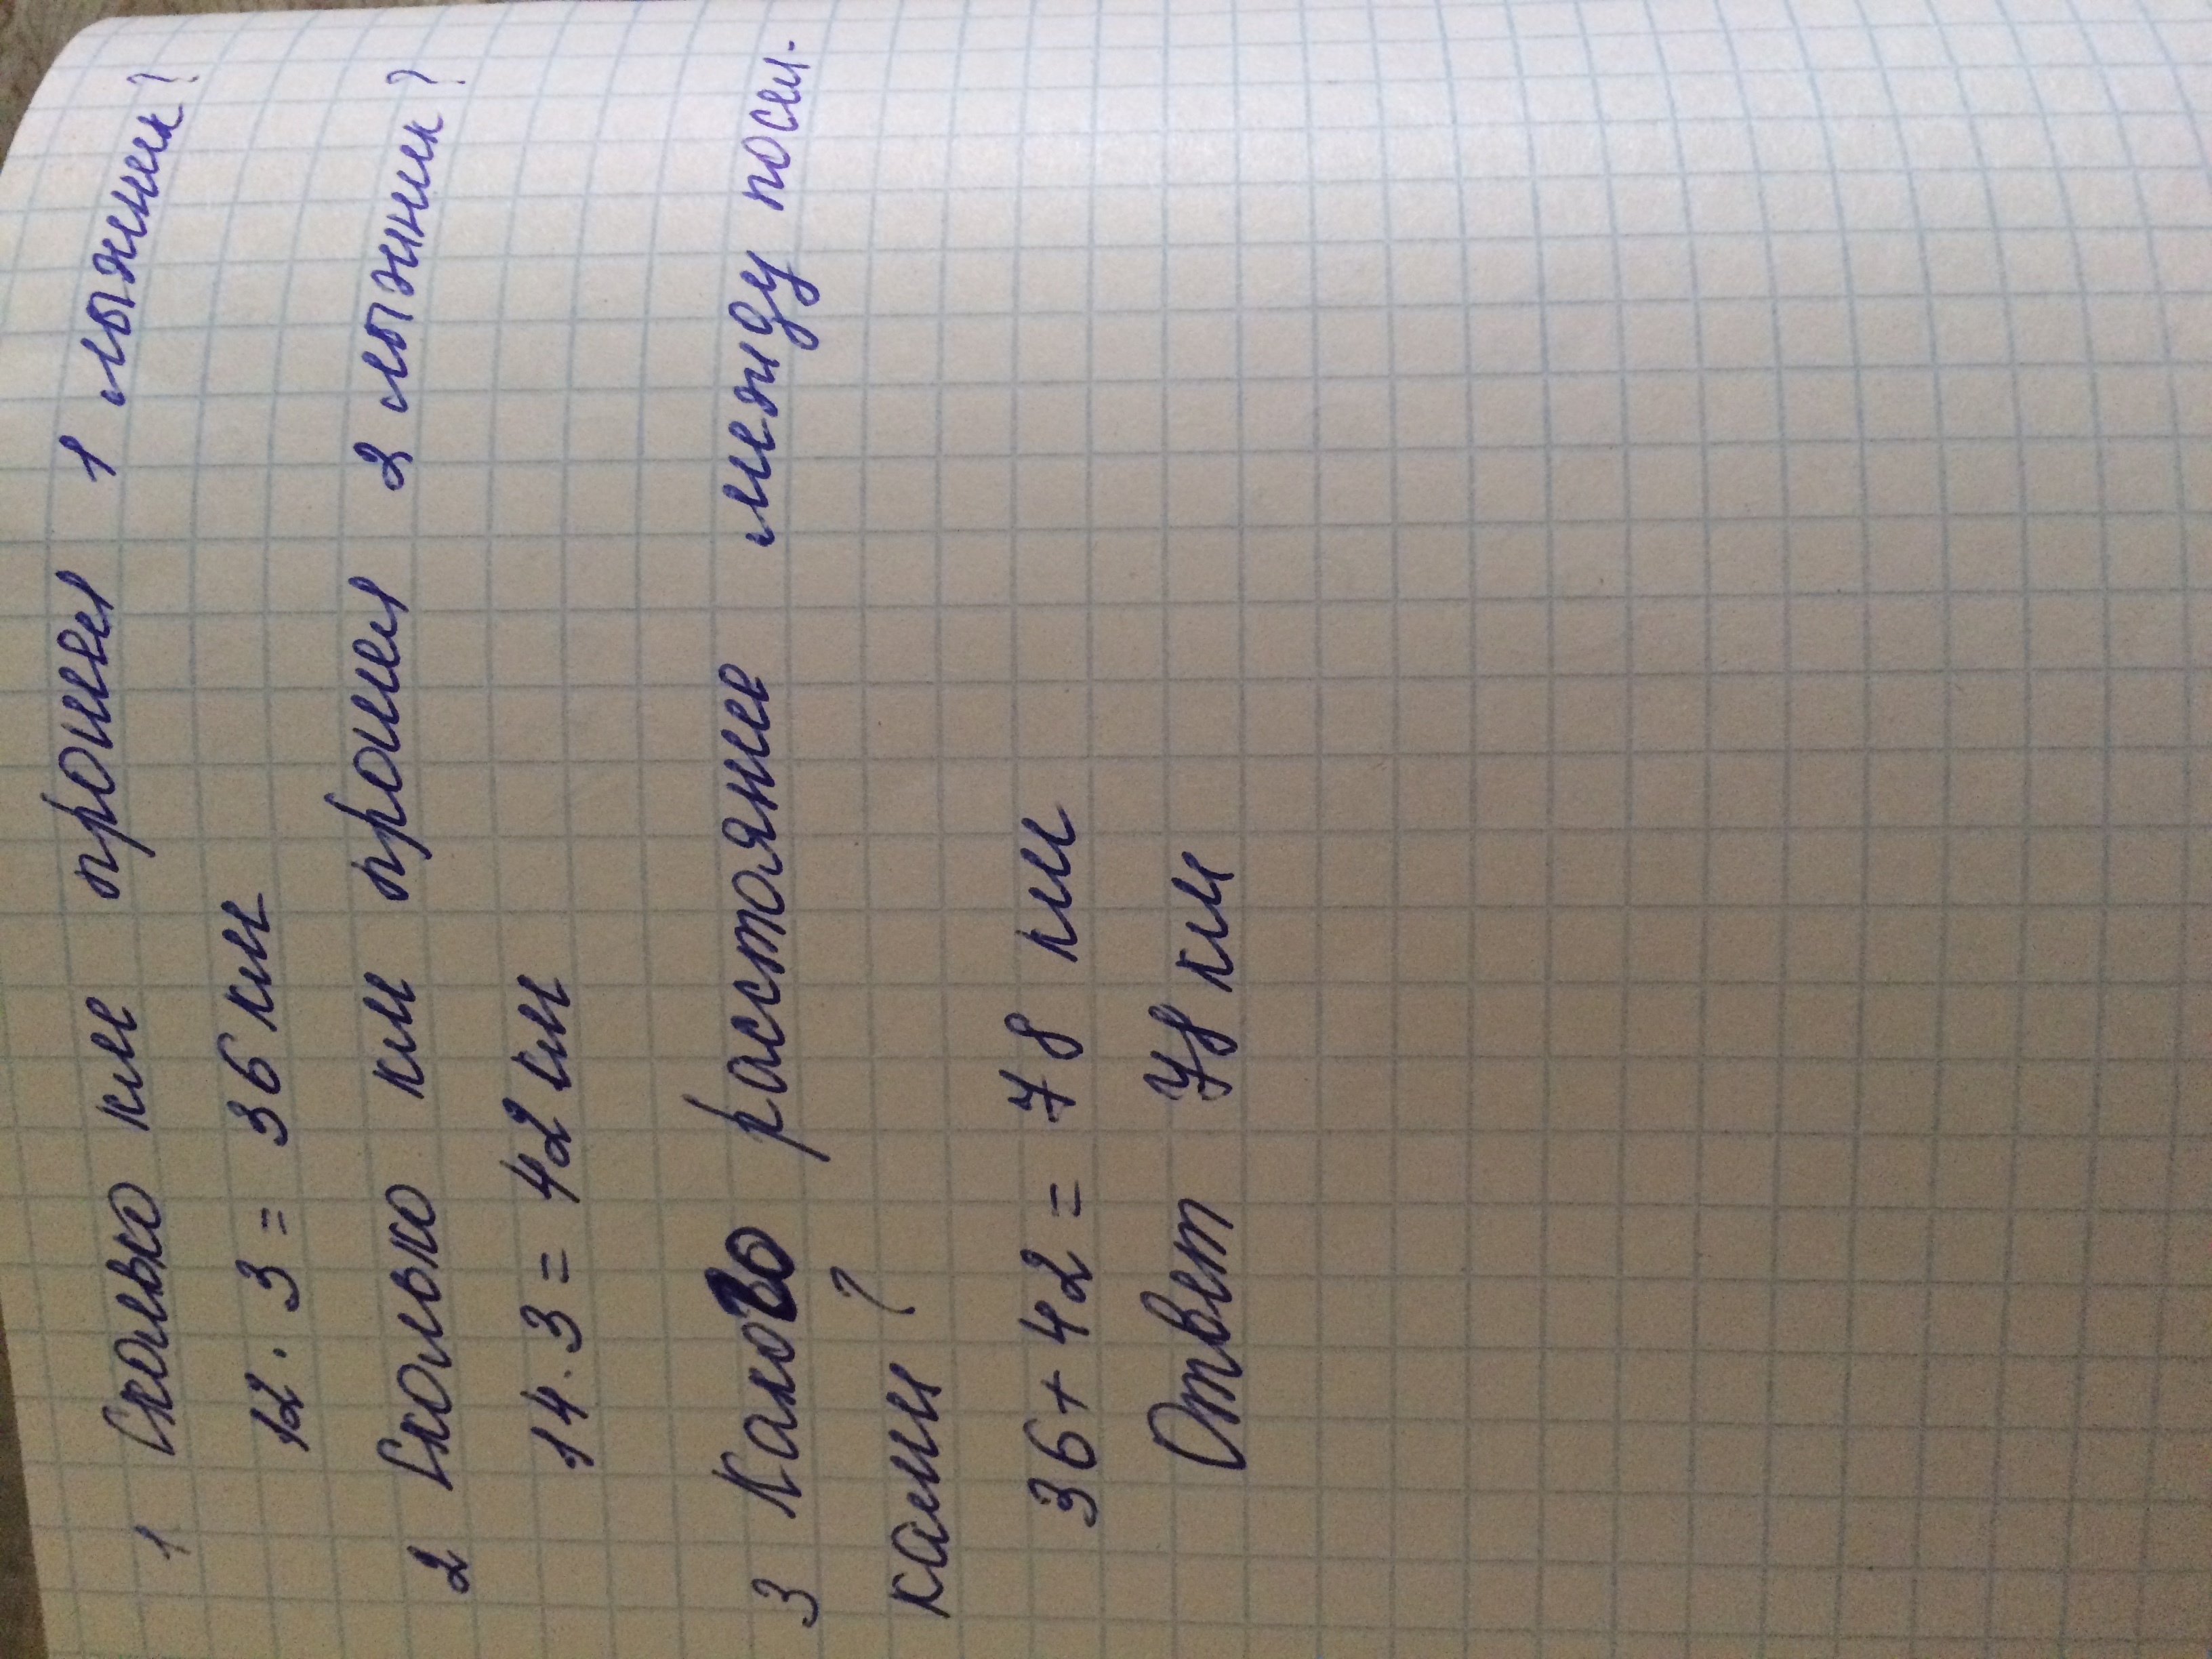 1 Сколько км прошел 1 лыжник?
12 · 3 = 36 км
2 Сколько км прошел 2 лыжник?
14 · 3 = 42 км
3 Каково расстояние между посел-
ками?
36 + 42 = 78 км
Ответ 78 км